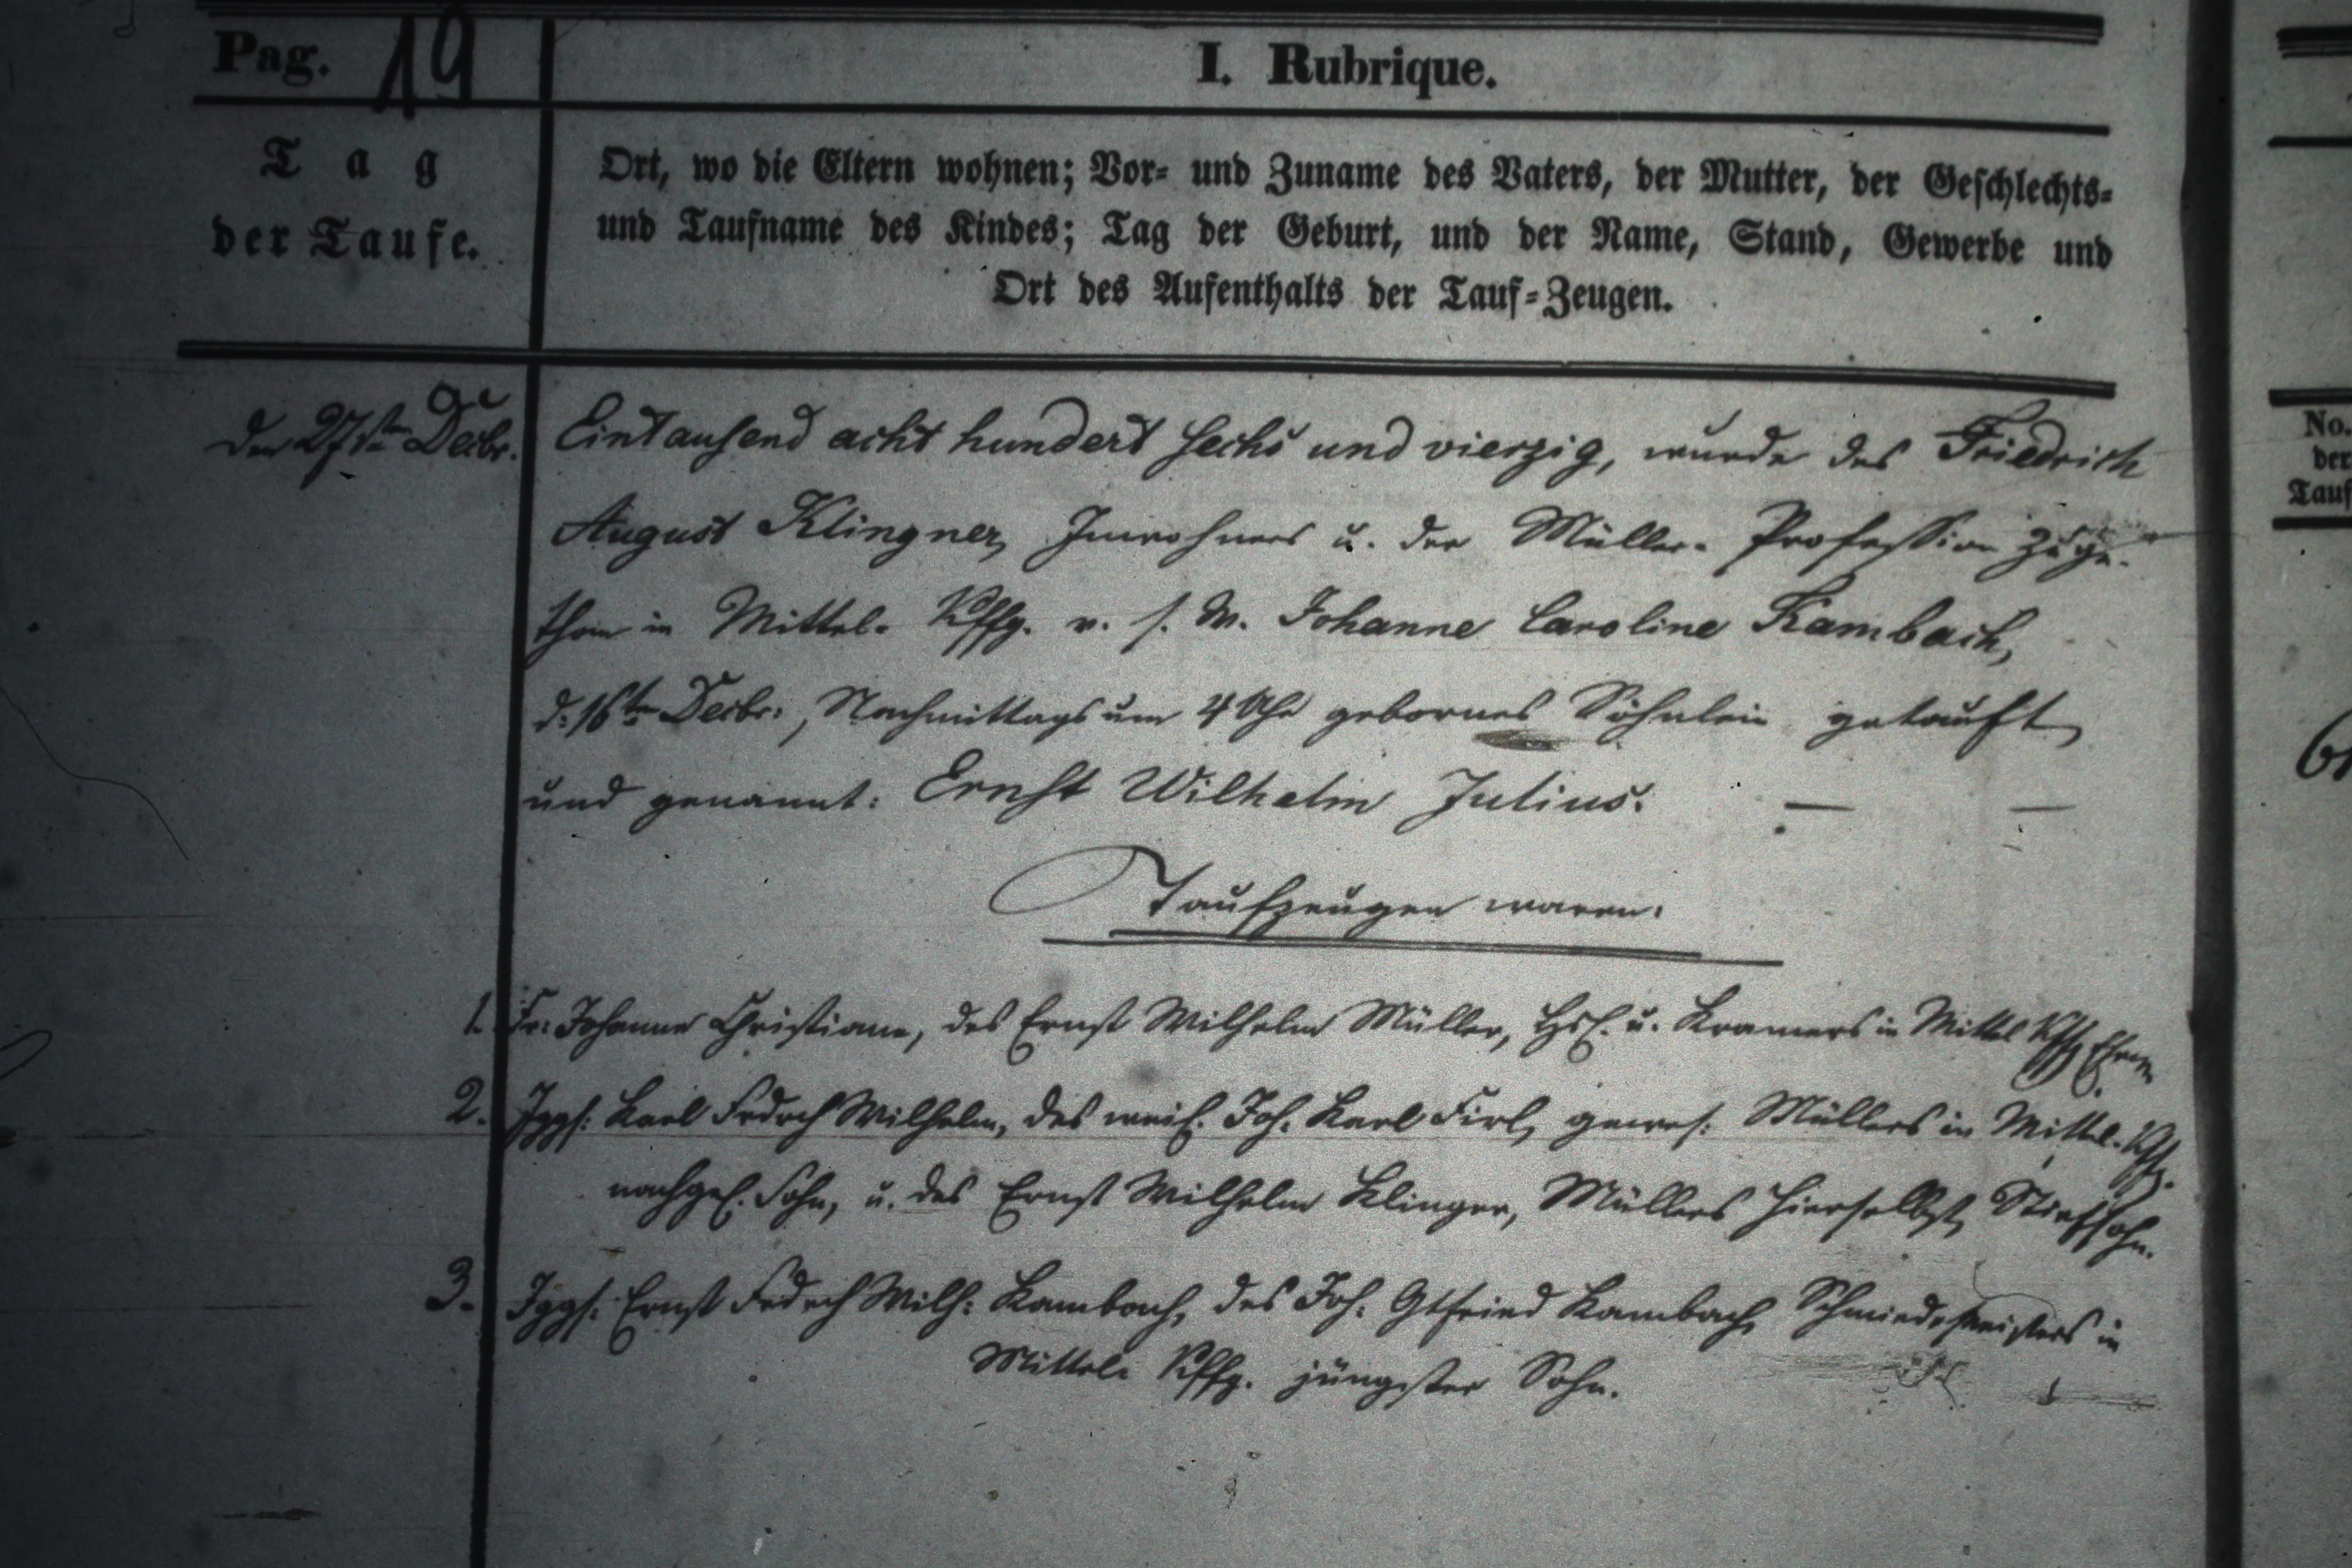 Pag. 19
I. Rubrique.
Tag
der Taufe.
Ort, wo die Eltern wohnen; Vor- und Zuname des Vaters, der Mutter, der Geschlechts-
und Taufname des Kindes; Tag der Geburt, und der Name, Stand, Gewerbe und
Ort des Aufenthalts der Tauf-Zeugen.
Den 27sten Decbr. Eintausend acht hundert sechs und vierzig, wurde des Friedrich
August Klingner, Inwohners u. der Müller-Profession zuge-
than in Mittel-Kffg. v. s. W. Johanne Caroline Kambach,
d. 16ten Decbr., Nachmittags um 4 Uhr gebornes Söhnlein getauft,
und genannt: Ernst Wilhelm Julius. — —
Taufzeugen waren:
1. Fr. Johanne Christiane, des Ernst Wilhelm Müller, Hsl. u. Kramers in Mittel Kffg.
2. Jggs. Karl Frdrch Wilhelm, des weil. Joh. Karl Firl, gewes. Müllers in Mittel-Kffg.
nachgel. Sohn, u. des Ernst Wilhelm Klinger, Müllers hierselbst, Stiefsohn.
3. Jggs. Ernst Frdrch Wilh: Kambach, des Joh. Gtfried Kambach, Schmiedemeisters in
Mittel-Kffg. jüngster Sohn.
No.
der
Tauf